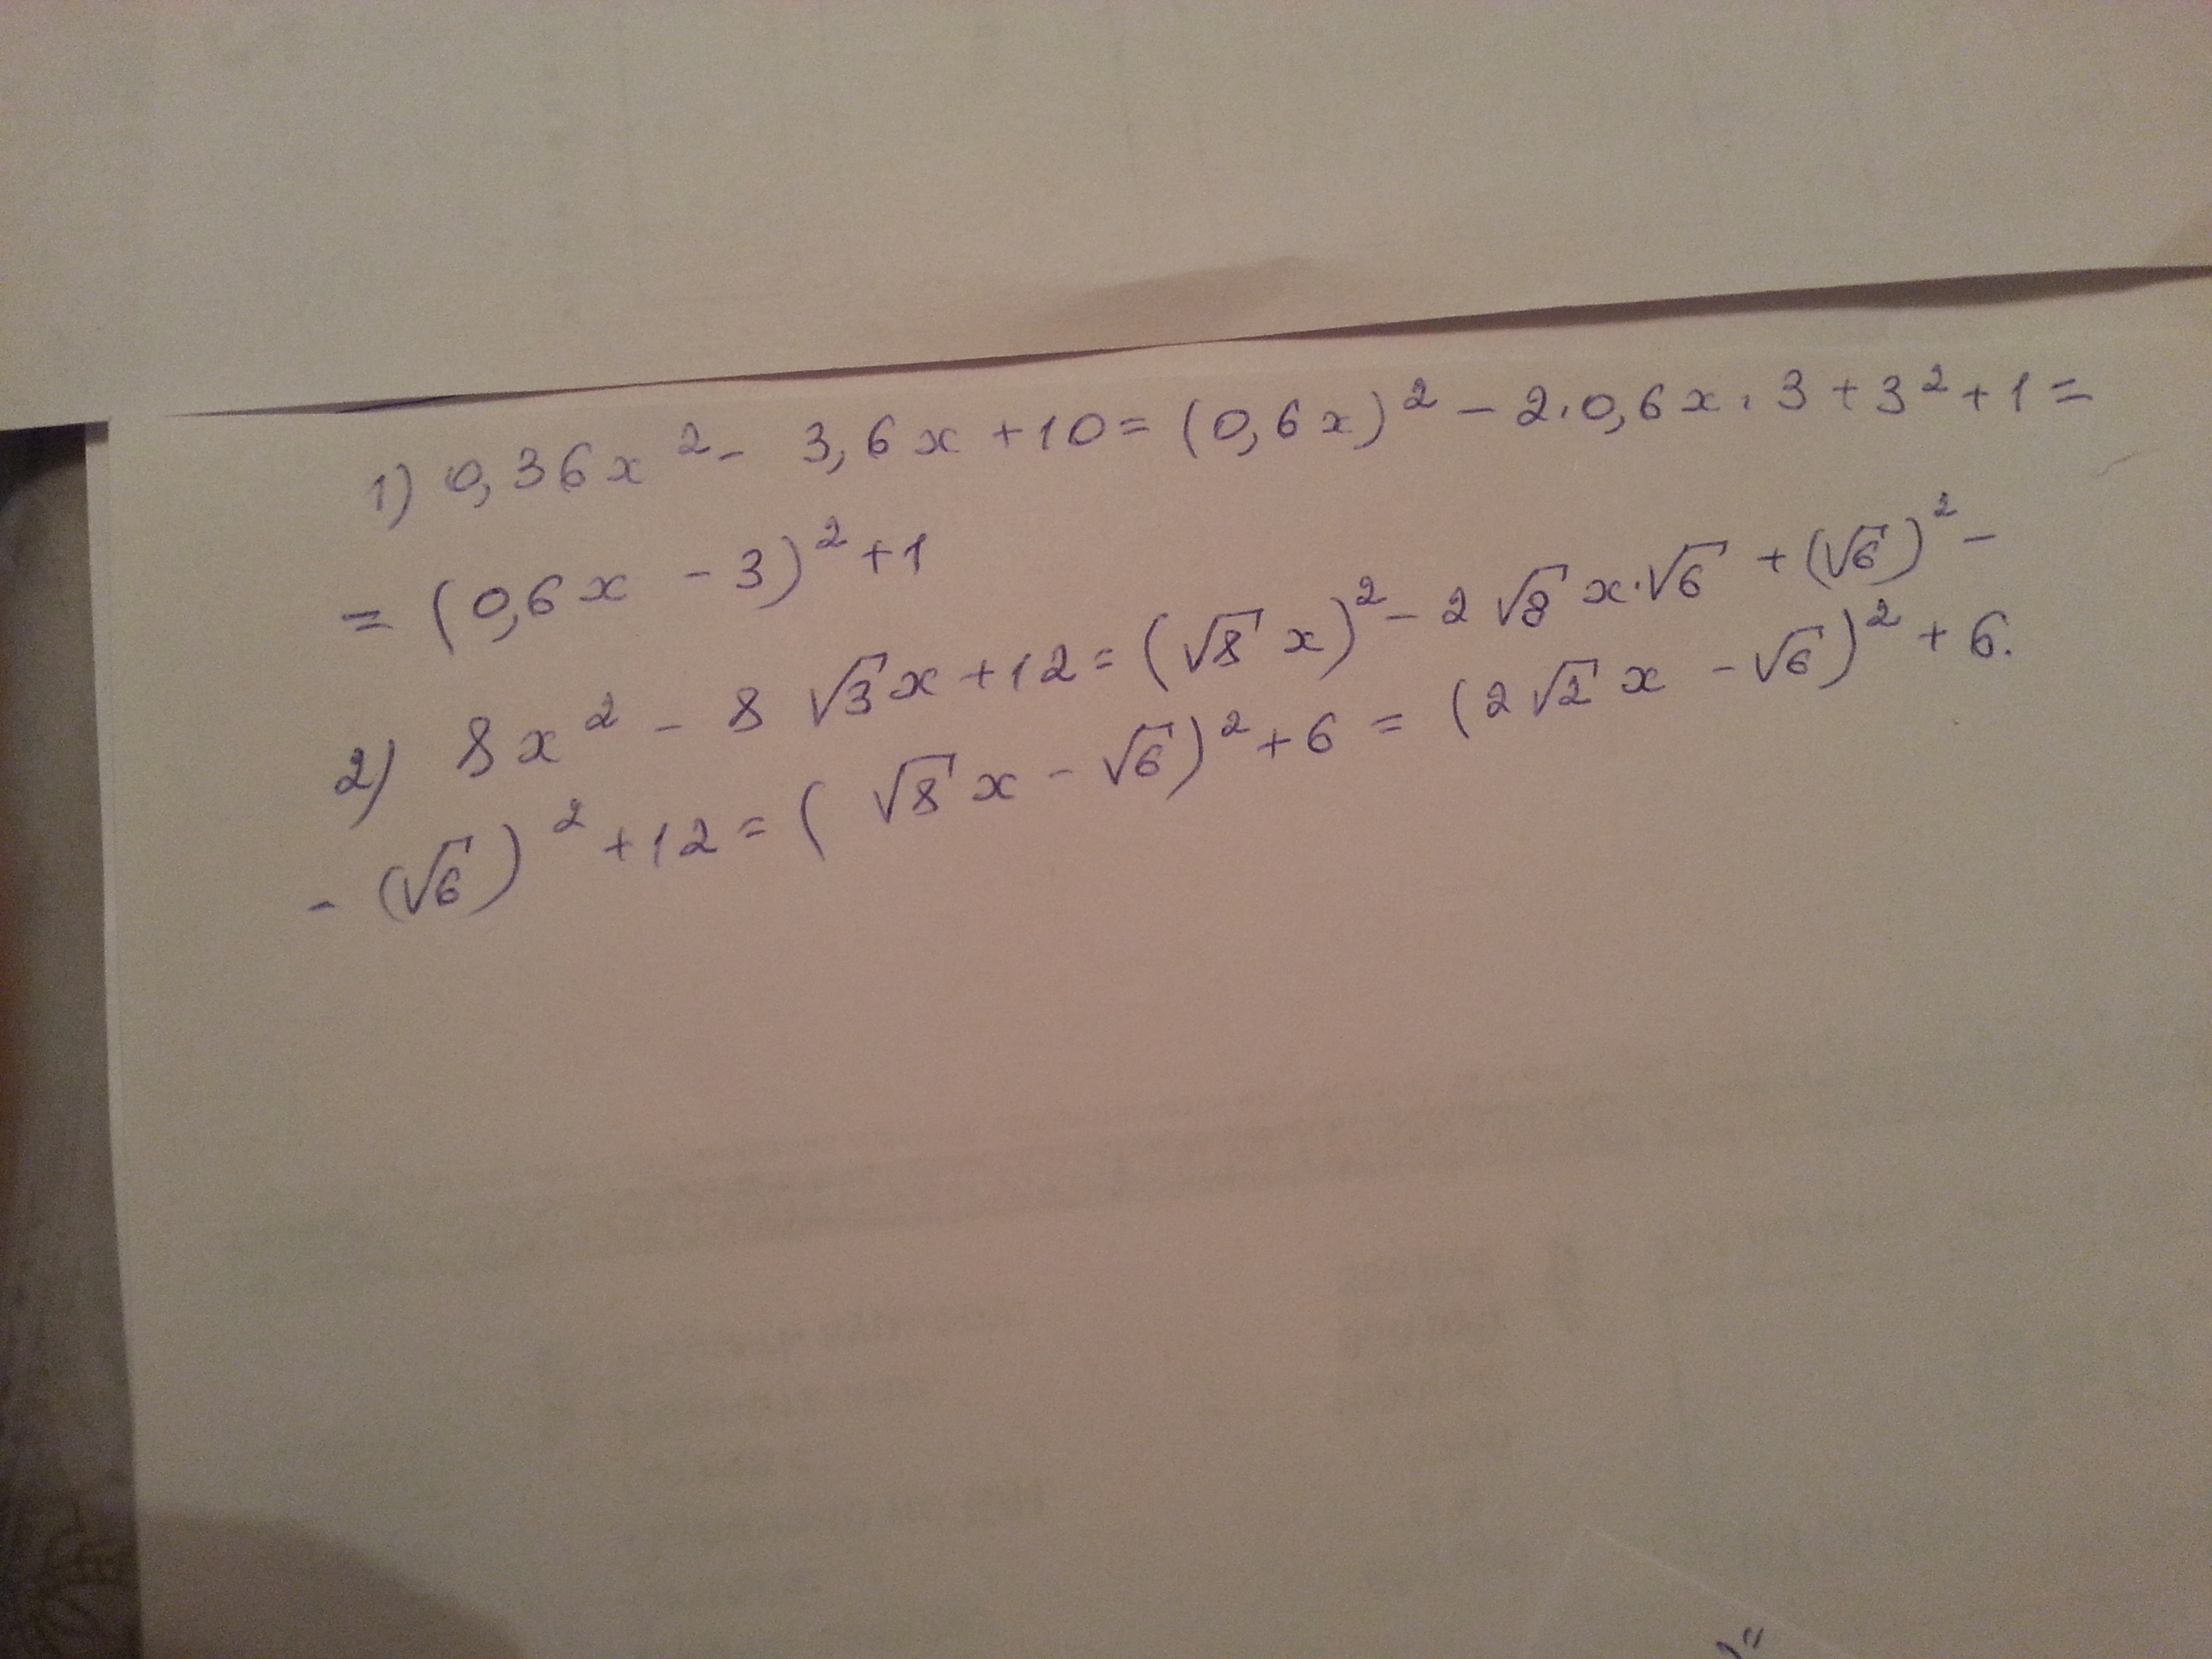 1) 0,36x² - 3,6x + 10 = (0,6x)² - 2·0,6x·3 + 3² + 1 =
= (0,6x - 3)² + 1
2) 8x² - 8√3x + 12 = (√8x)² - 2√8x·√6 + (√6)² -
- (√6)² + 12 = (√8x - √6)² + 6 = (2√2x - √6)² + 6.